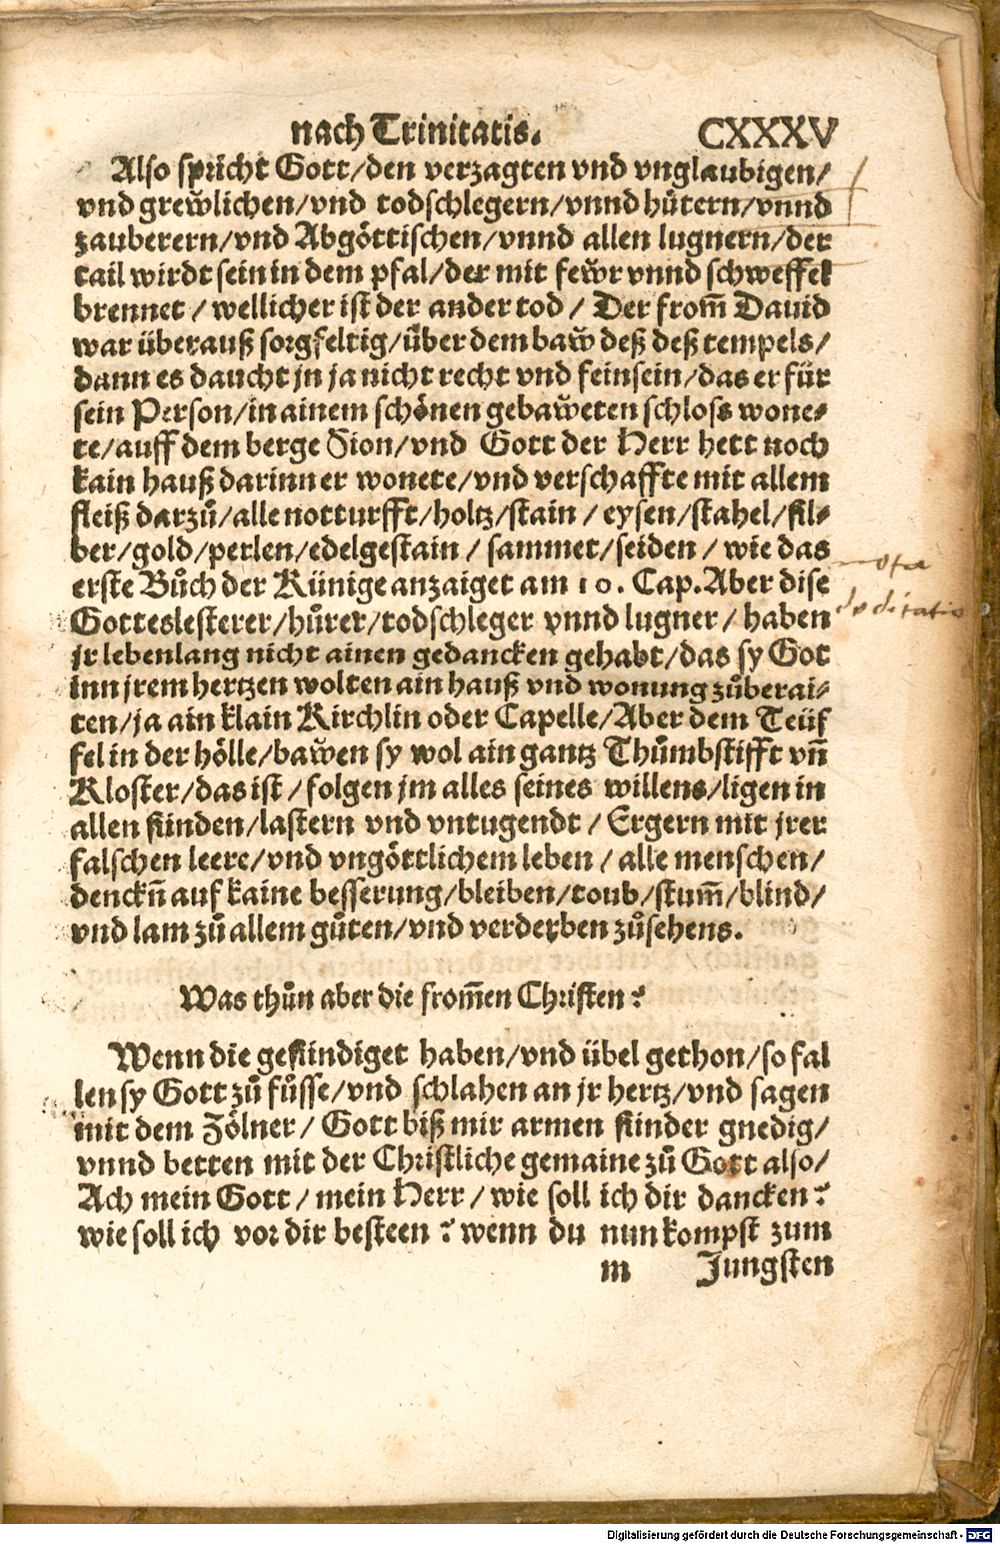 nach Trinitatis. CXXXV
Also spricht Gott/den verzagten vnd vnglaubigen/
vnd grew̆lichen/vnd todschlegern/vnnd hůrern/vnnd
zauberern/vnd Abgöttischen/vnnd allen lugnern/der
tail wirdt sein in dem pfal/der mit few̆r vnnd schweffel
brennet / wellicher ist der ander tod / Der from̃ Dauid
war überauß sorgfeltig/über dem baw̆ deß deß tempels/
dann es daucht jn ja nicht recht vnd fein sein/das er für
sein Person/in ainem schönen gebaw̆eten schloss wone⸗
te/auff dem berge Sion/vnd Gott der Herr hett noch
kain hauß darinn er wonete/vnd verschaffte mit allem
fleiß darzů/alle notturfft/holtz/stain / eysen/stahel/sil⸗
ber/gold/perlen/edelgestain / sammet/seiden / wie das
erste Bůch der Künige anzaiget am 10. Cap. Aber dise
Gotteslesterer/hůrer/todschleger vnnd lugner / haben
jr lebenlang nicht ainen gedancken gehabt/das sy Got
inn jrem hertzen wolten ain hauß vnd wonung zůberai⸗
ten/ja ain klain Kirchlin oder Capelle/Aber dem Teüf
fel in der hölle/baw̆en sy wol ain gantz Thůmbstifft vñ
Kloster/das ist / folgen jm alles seines willens/ligen in
allen sünden/lastern vnd vntugendt / Ergern mit jrer
falschen leere/vnd vngöttlichem leben / alle menschen/
denckñ auf kaine besserung/bleiben/toub/stum̃/blind/
vnd lam zů allem gůten/vnd verderben zůsehens.
Was thůn aber die from̃en Christen?
Wenn die gesündiget haben/vnd übel gethon/so fal
len sy Gott zů fůsse/vnd schlahen an jr hertz/vnd sagen
mit dem Zölner / Gott biß mir armen sünder gnedig/
vnnd betten mit der Christliche gemaine zů Gott also/
Ach mein Gott / mein Herr / wie soll ich dir dancken?
wie soll ich vor dir besteen? wenn du nun kompst zum
m Jungsten
Digitalisierung gefördert durch die Deutsche Forschungsgemeinschaft - DFG